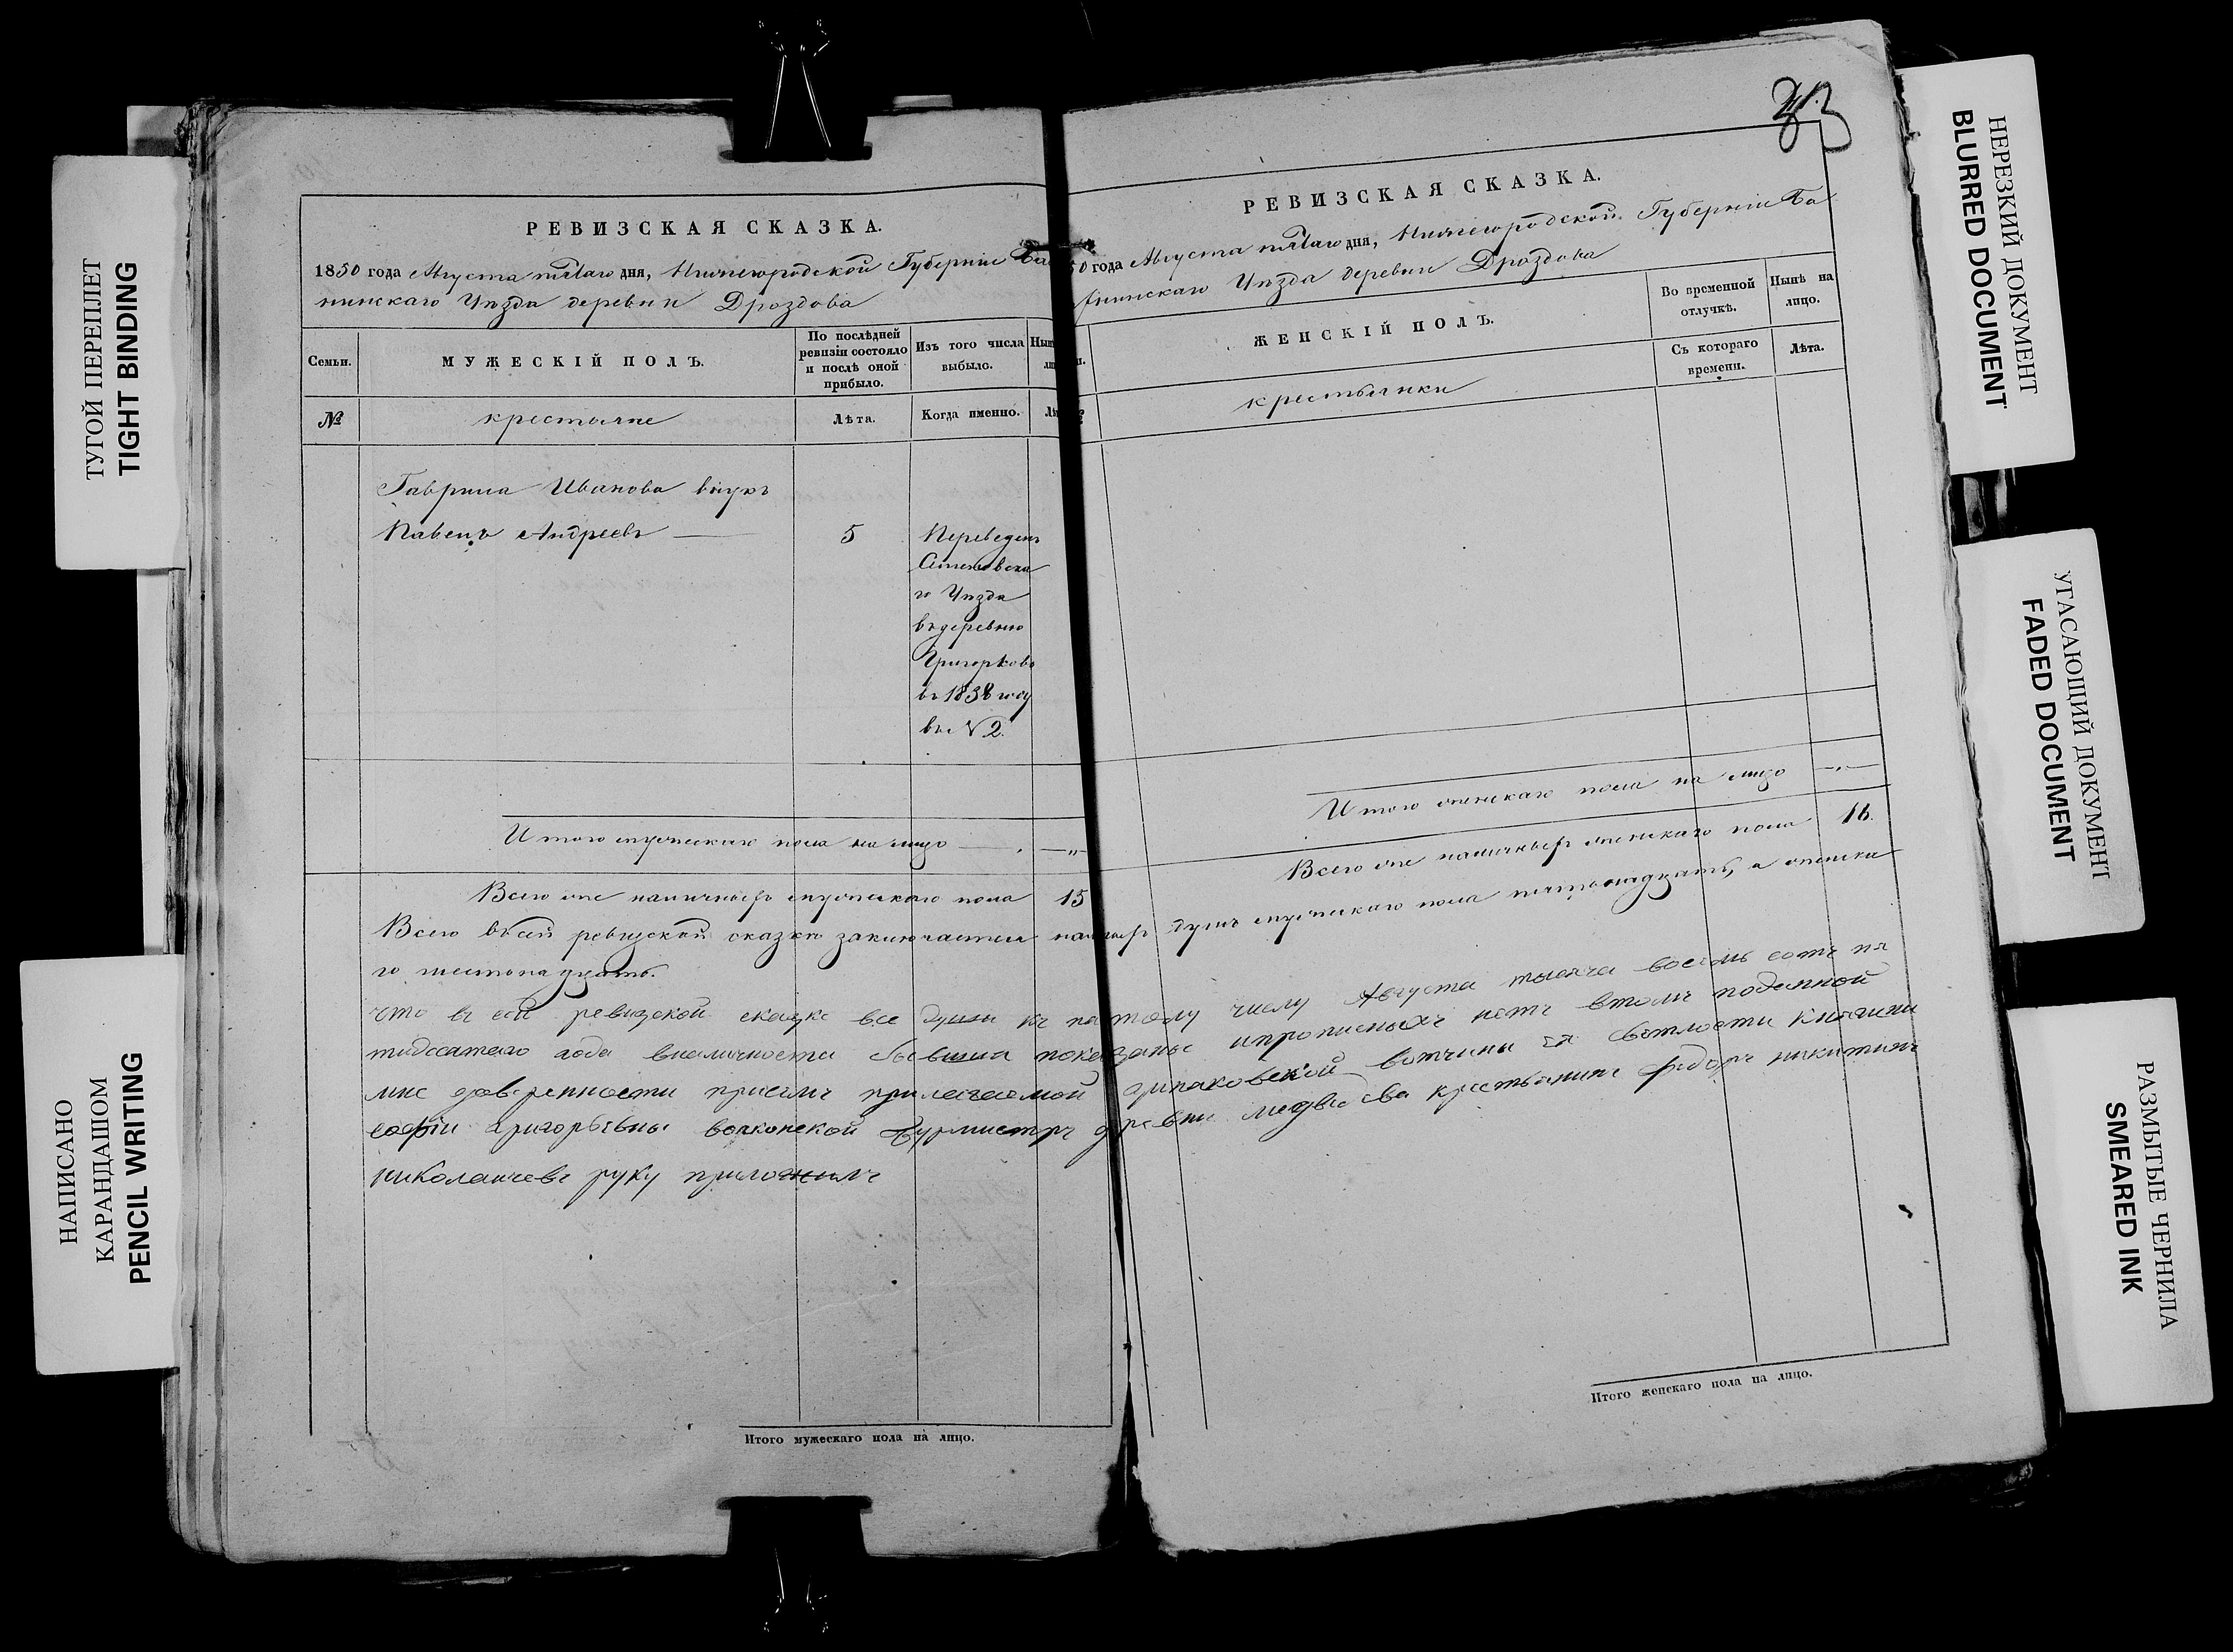 ТУГОЙ ПЕРЕПЛЕТ
TIGHT BINDING
НАПИСАНО
КАРАНДАШОМ
PENCIL WRITING
РЕВИЗСКАЯ СКАЗКА.
1850 года Августа пятаго дня, Нижегородской Губернии Ба
нинскаго Уѣзда деревни Дроздова
Семьи.
МУЖЕСКІЙ ПОЛЪ.
По послѣдней
ревизіи состояло
и послѣ оной
прибыло.
Изъ того числа
выбыло.
№
крестьяне
Лѣта.
Когда именно.
Гаврила Иванова внукъ
Павелъ Андреевъ
5
Переведенъ
Семеновска
го Уѣзда
въ деревню
Григорково
въ 1838 году
въ № 2.
Итого мужескаго пола на лицо
Всего же наличныхъ мужескаго пола 15
Итого мужескаго пола на лицо.
33
РЕВИЗСКАЯ СКАЗКА.
50 года Августа пятаго дня, Нижегородской Губерніи Ба
нинскаго Уѣзда деревни Дроздова
ЖЕНСКІЙ ПОЛЪ.
Во временной
отлучкѣ.
Нынѣ на
лицо.
Съ котораго
времени.
Лѣта.
крестьянки
Итого женскаго пола на лицо
Всего же наличныхъ женскаго пола 16.
Всего въ сей ревизской сказки заключается наличныхъ душъ мужескаго пола пятьнадцать, а женска
го шестьнадцать.
что в сей ревизской скаске все души къ пятому числу Августа тысяча восемь сотъ пя
тидесятаго года вналичности бывшия показаны ипрописныхъ нетъ втомъ поданной
мне доверенности присемъ прилагаемой вотчины ея светлости Княгини
софіи григорьевны волконской бурмистръ деревни медведева крестьянинъ федоръ никитинъ
николаичевъ руку приложилъ
Итого женскаго пола на лицо.
НЕРЕЗКИЙ ДОКУМЕНТ
BLURRED DOCUMENT
УГАСАЮЩИЙ ДОКУМЕНТ
FADED DOCUMENT
РАЗМЫТЫЕ ЧЕРНИЛА
SMEARED INK